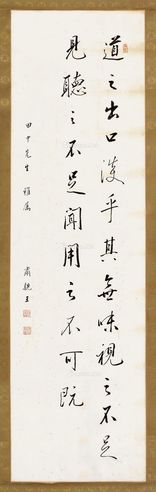 道之出口淡乎其無味視之不足
見聽之不足聞用之不可既
田中先生 雅屬
肅親王